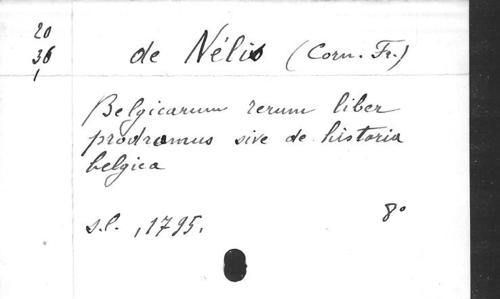 20
36
1
de Nélis (Corn. Fr.)
Belgicarum rerum liber
prodromus sive de historia
belgica
s.l., 1795.
8°